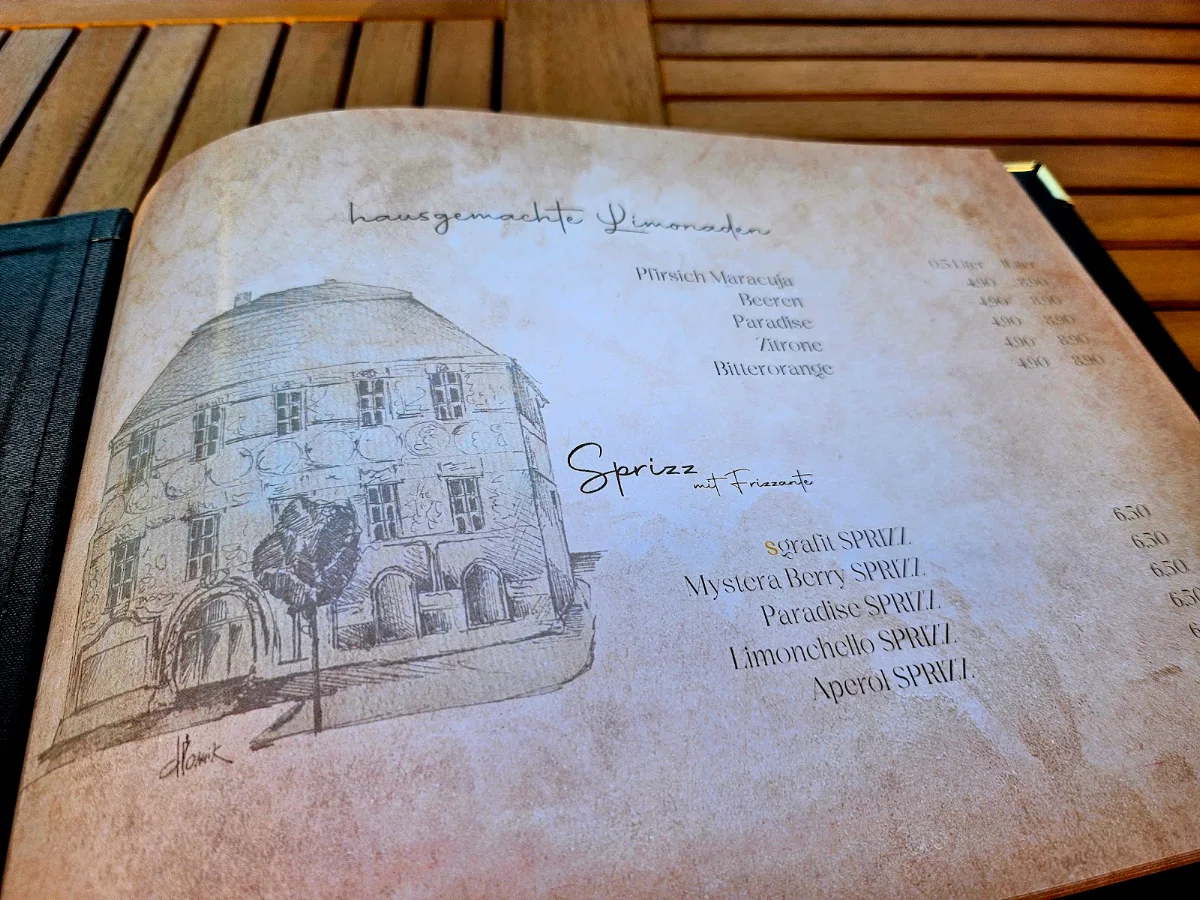 hausgemachte Limonaden
0.5 Liter 1 Liter
Pfirsich Maracuja 4.90 8.90
Beeren 4.90 8.90
Paradise 4.90 8.90
Zitrone 4.90 8.90
Bitterorange 4.90 8.90
Sprizz
mit Frizzante
sgrafit SPRIZZ 6.50
Mystera Berry SPRIZZ 6.50
Paradise SPRIZZ 6.50
Limonchello SPRIZZ 6.50
Aperol SPRIZZ